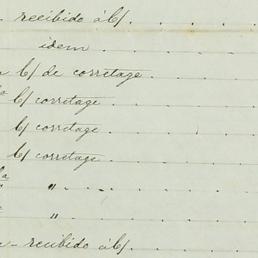 recibido á c/
idem
c/ de corretage
c/ corretage
c/ corretage
c/ corretage
"
"
recibido á c/